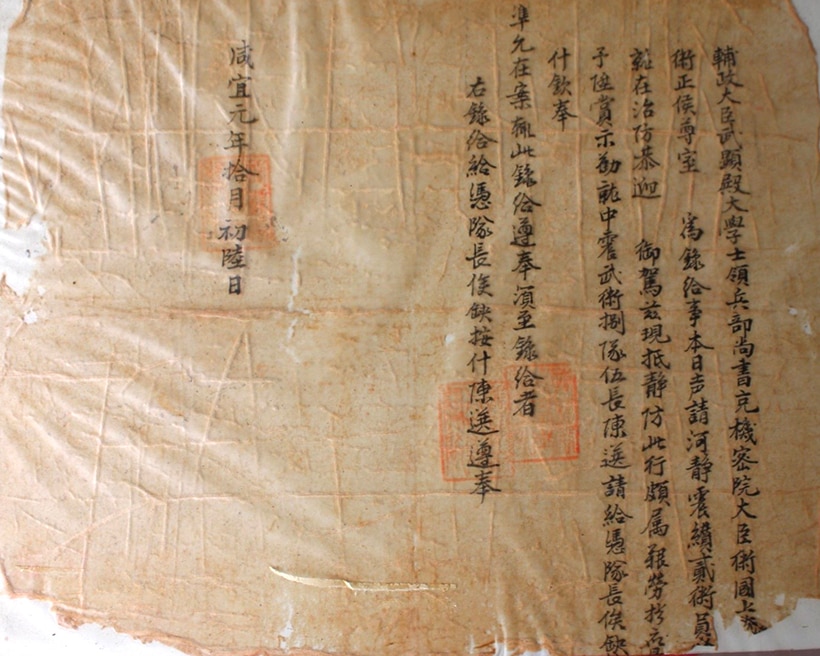 輔政大臣武顯殿大學士領兵部尚書充機密院大臣衛國上將
衛正侯尊室　為錄給事本日声請河靜震績貳衛員
訖在治防恭迎　御駕茲現抵靜防此行頗属艱劳於
予陞賞示勸訖中震武衛捌隊伍長陳選請給憑隊長俟缺
什欽奉
準允在案輒此錄給遵奉須至錄給者
右錄給給憑隊長俟缺按什陳選遵奉
咸宜元年拾月初陸日